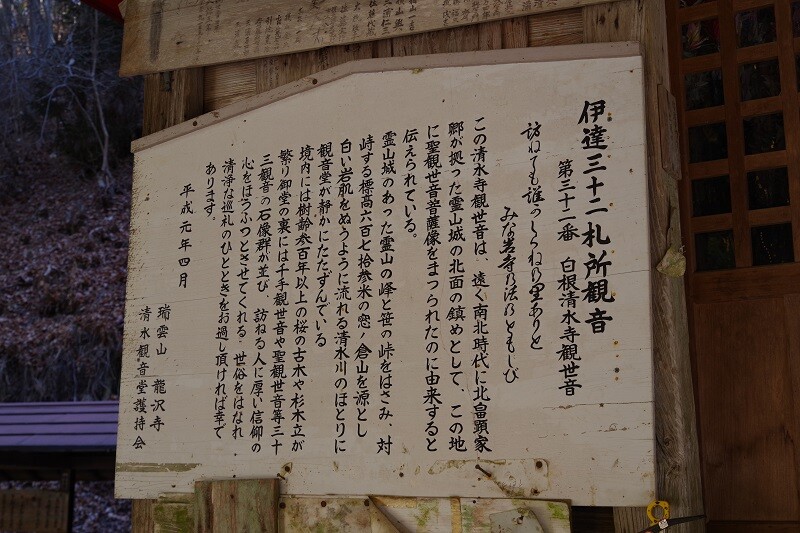 伊達三十二札所観音
第三十二番　白根清水寺観世音
訪ねても誰のしらね乃里ありと
みな岩寺乃法乃ともしび
この清水寺観世音は、遠く南北時代に北畠顕家
卿が拠った霊山城の北面の鎮めとして、この地
に聖観世音菩薩像をまつられたのに由来すると
伝えられている。
霊山城のあった霊山の峰と笹の峠をはさみ、対
峙する標高六百七拾参米の窓ノ倉山を源とし
白い岩肌をぬうように流れる清水川のほとりに
観音堂が静かにたたずんでいる
境内には樹齢参百年以上の桜の古木や杉木立が
繁り御堂の裏には千手観世音や聖観世音等三十
三観音の石像群が並び、訪ねる人に厚い信仰の
心をほうふつとさせてくれる。世俗をはなれ
清浄な巡札のひとときをお過し頂ければ幸で
あります。
平成元年四月
瑞雲山　龍沢寺
清水観音堂護持会